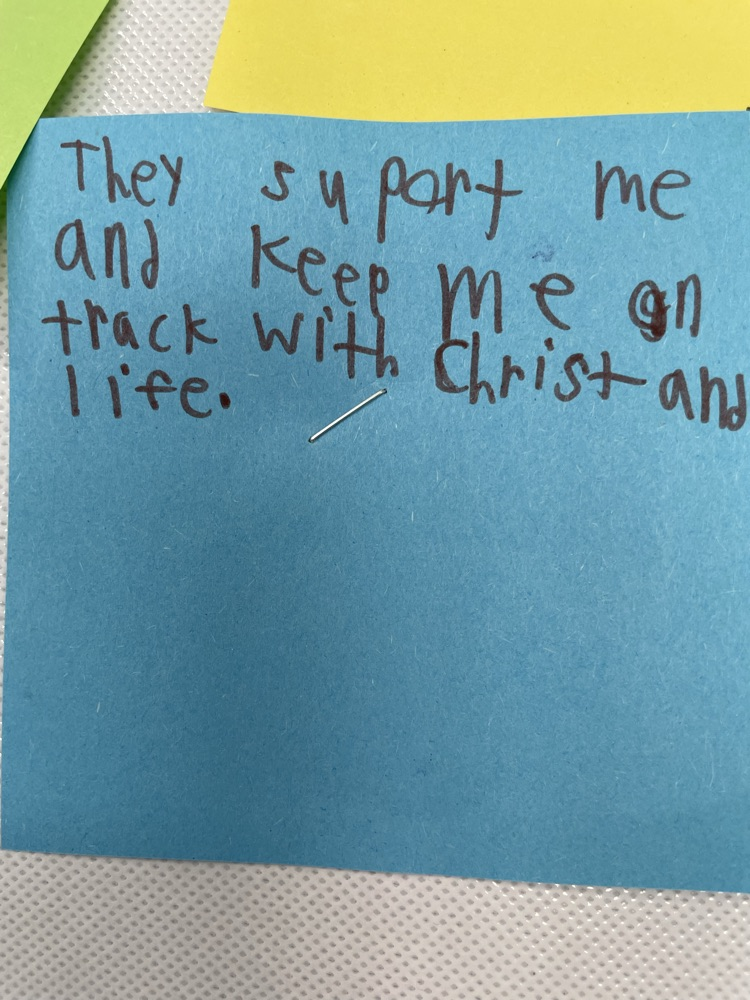 They suport me
and keep me on
track with Christ and
life.